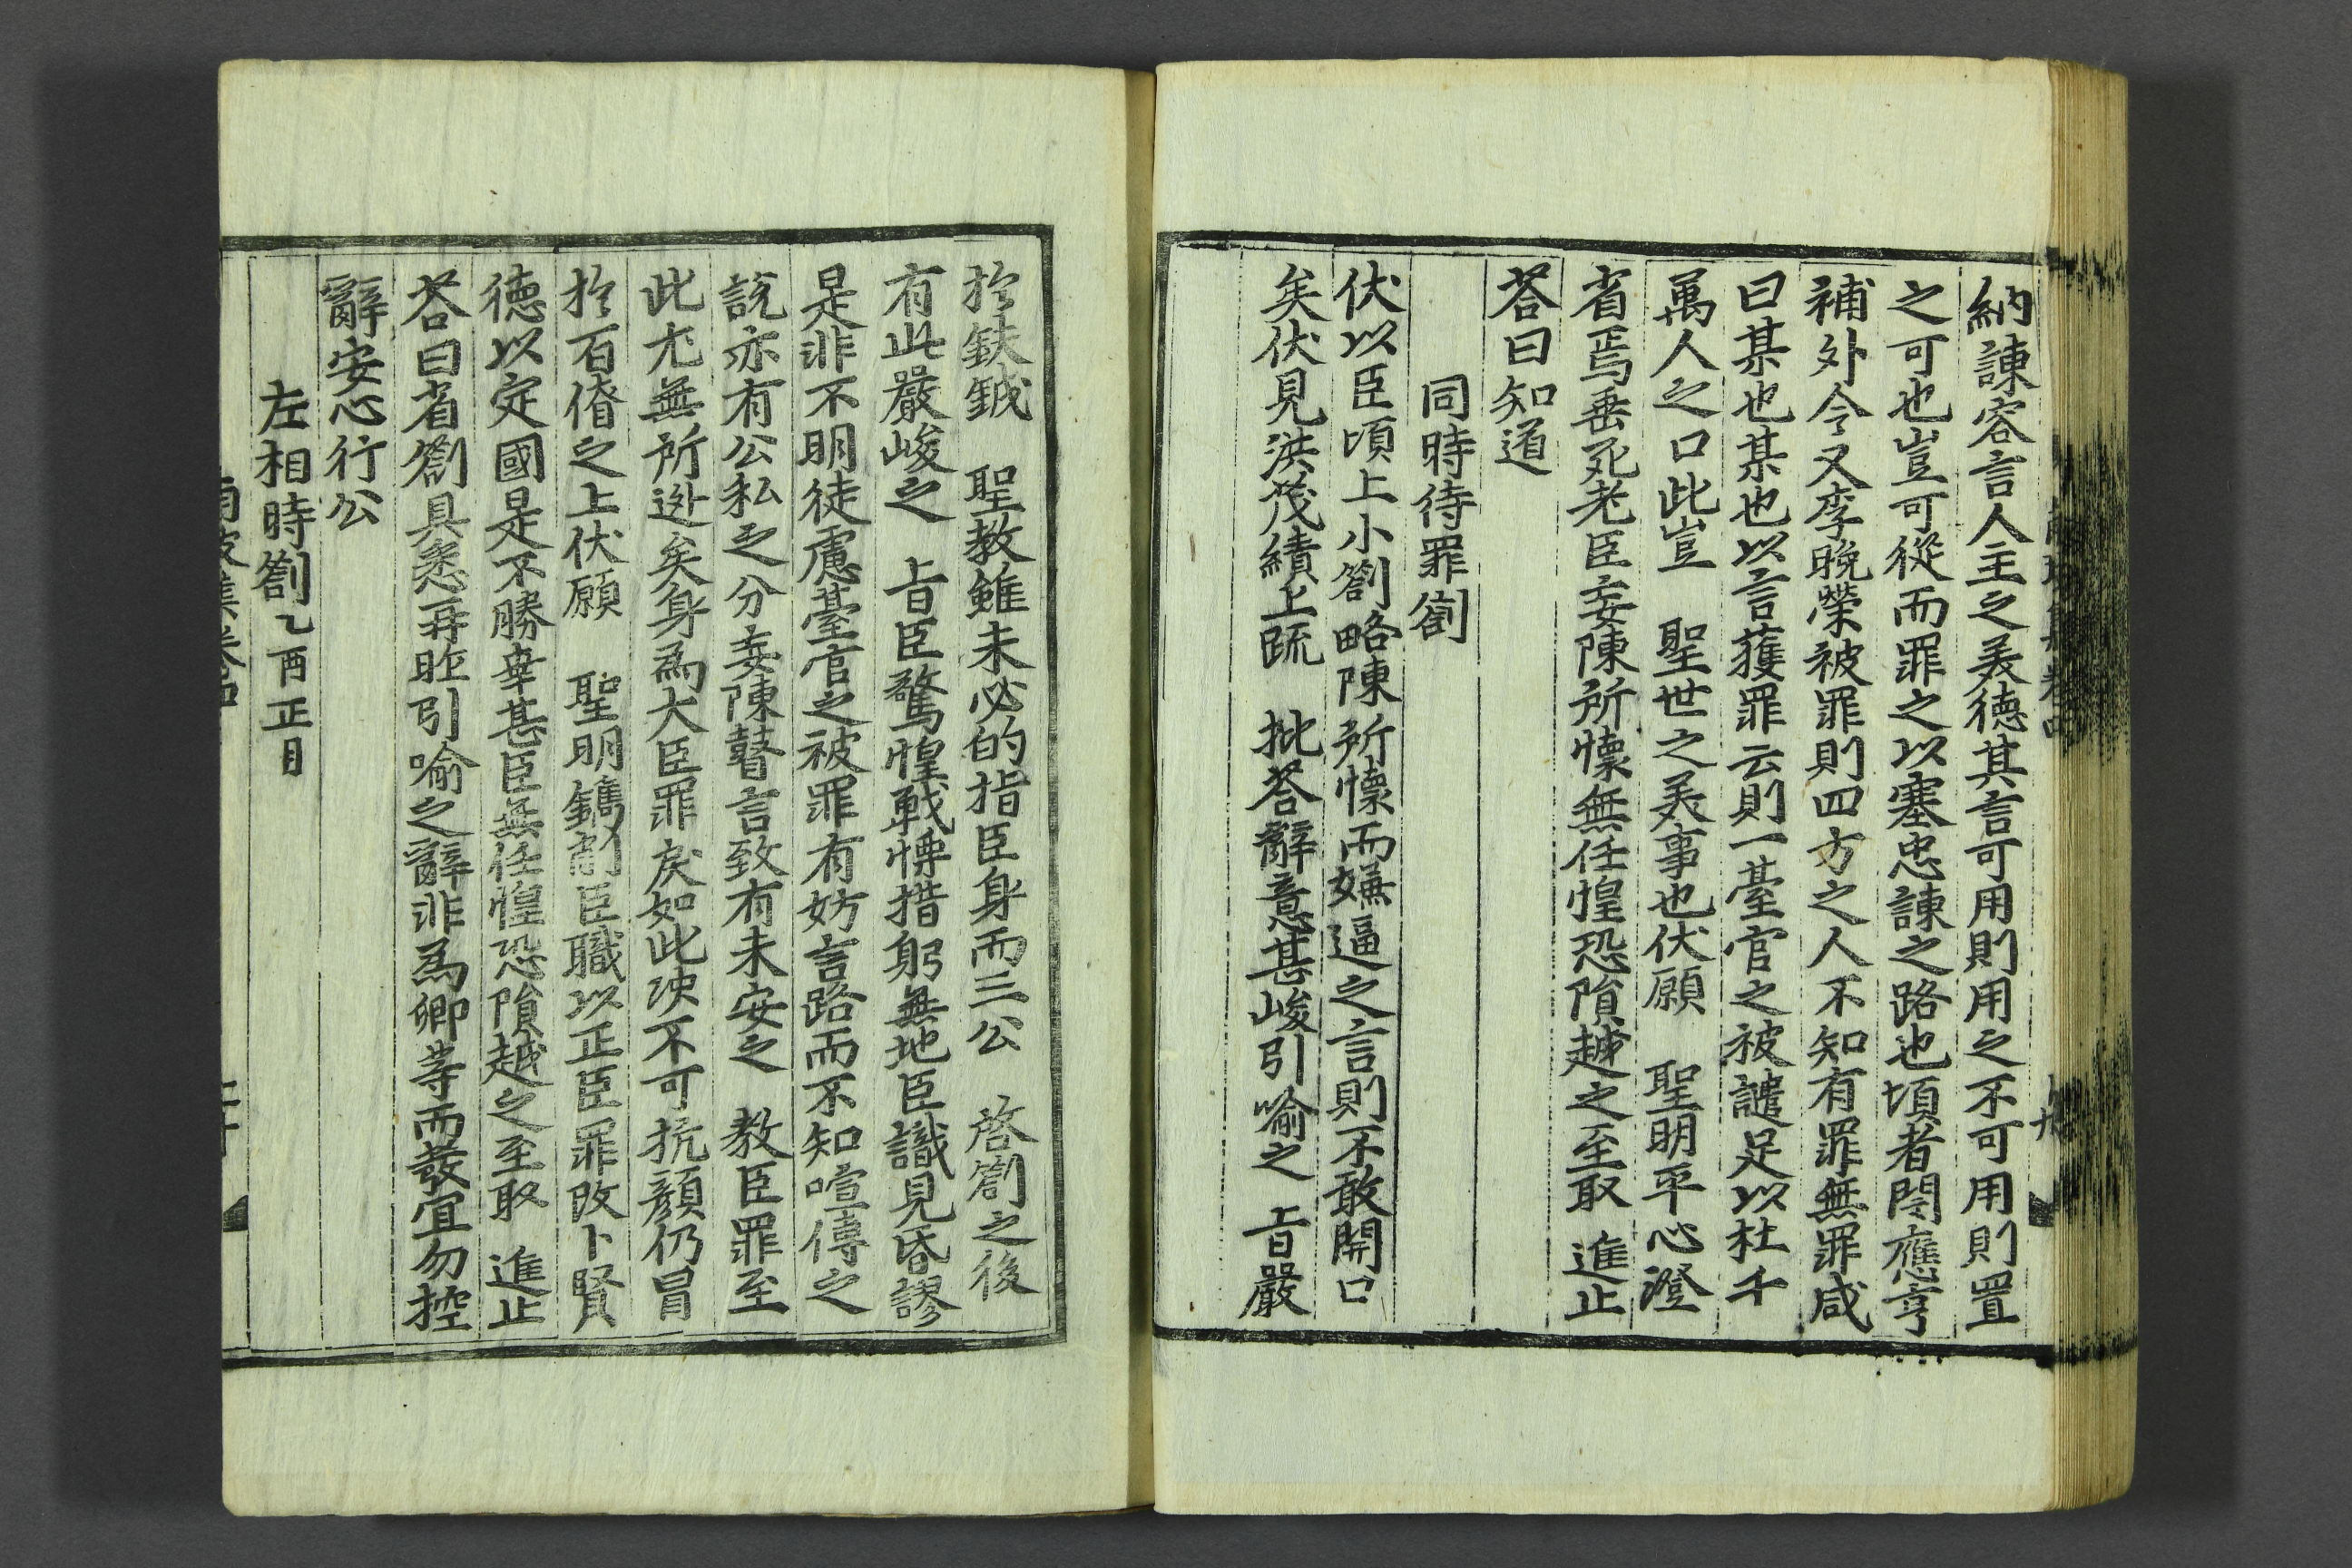 納諫容言人主之美德其言可用則用之不可用則置
之可也豈可從而罪之以塞忠諫之路也頃者閔應亨
補外今又李晩榮被罪則四方之人不知有罪無罪咸
曰某也某也以言獲罪云則一臺官之被譴足以杜千
萬人之口此豈 聖世之美事也伏願 聖明平心澄
省焉垂死老臣妄陳所懷無任惶恐隕越之至取 進止
答曰知道
同時待罪劄
伏以臣頃上小劄略陳所懷而嫌逼之言則不敢開口
矣伏見洪茂績上疏 批答辭意甚峻引喩之 旨嚴
於鈇鉞 聖教雖未必的指臣身而三公 啓劄之後
有此嚴峻之 旨臣驚惶戰悸措躬無地臣識見昏謬
是非不明徒慮臺官之被罪有妨言路而不知喧傳之
說亦有公私之分妄陳瞽言致有未安之 教臣罪至
此尤無所逃矣身爲大臣罪戾如此決不可抗顔仍冒
於百僚之上伏願 聖明鐫削臣職以正臣罪改卜賢
德以定國是不勝幸甚臣無任惶恐隕越之至取 進止
答曰省劄具悉再昨引喩之辭非爲卿等而發宜勿控
辭安心行公
左相時劄乙酉正月